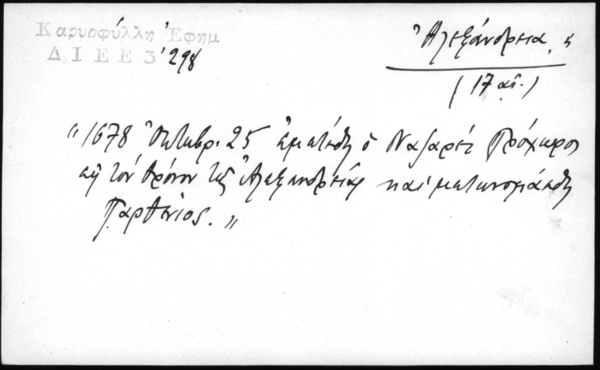 Καρυοφύλλη Ἐφημ
ΔΙΕΕ 3' 298
Ἀλεξάνδρεια, 5
(17 αἰ.)
"1678 Ὀκτωβρ. 25 ὁ Ναζαρὲτ Πρόχορος
εἰς τὸν θρόνον τῆς Ἀλεξανδρείας καὶ μετωνομάσθη
Παρθένιος."